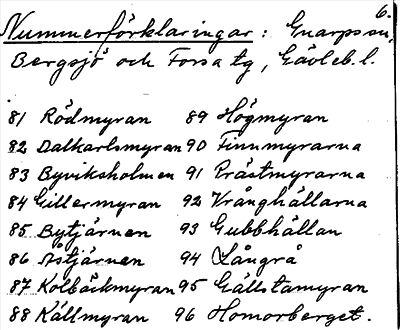 6.
Nummerförklaringar: Gnarps sn,
Bergsjö och Forsa tg, Gävleb. l.
81 Rödmyran 89 Högmyran
82 Dalkarlsmyran 90 Finnmyrarna
83 Byviksholmen 91 Prästmyrarna
84 Gillermyran 92 Vrånghällarna
85 Bytjärnen 93 Gubbhällan
86 Åstjärnen 94 Långrå
87 Kolbäckmyran 95 Gällstamyran
88 Källmyran 96 Homorberget.